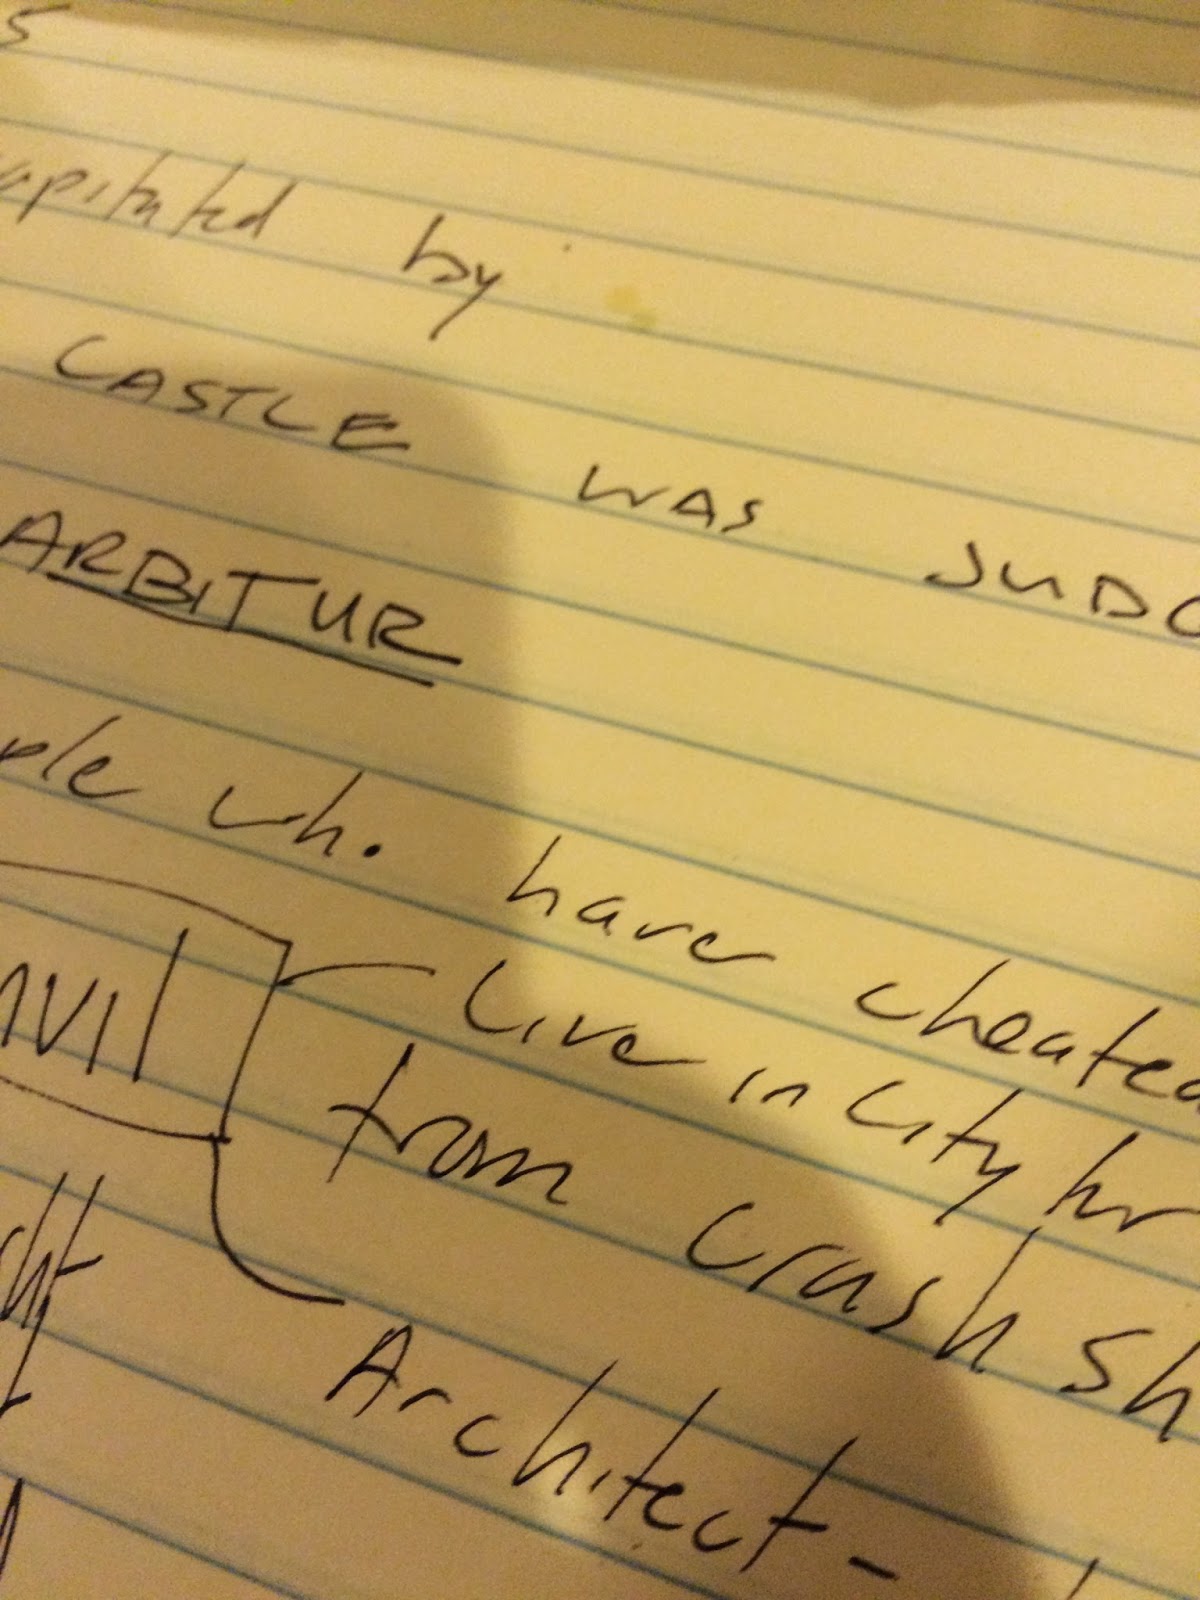 s
apitated by
CASTLE WAS JUDG
ARBITUR
ple who have cheated
NVIL
Live in City
from crash sh
Architect -